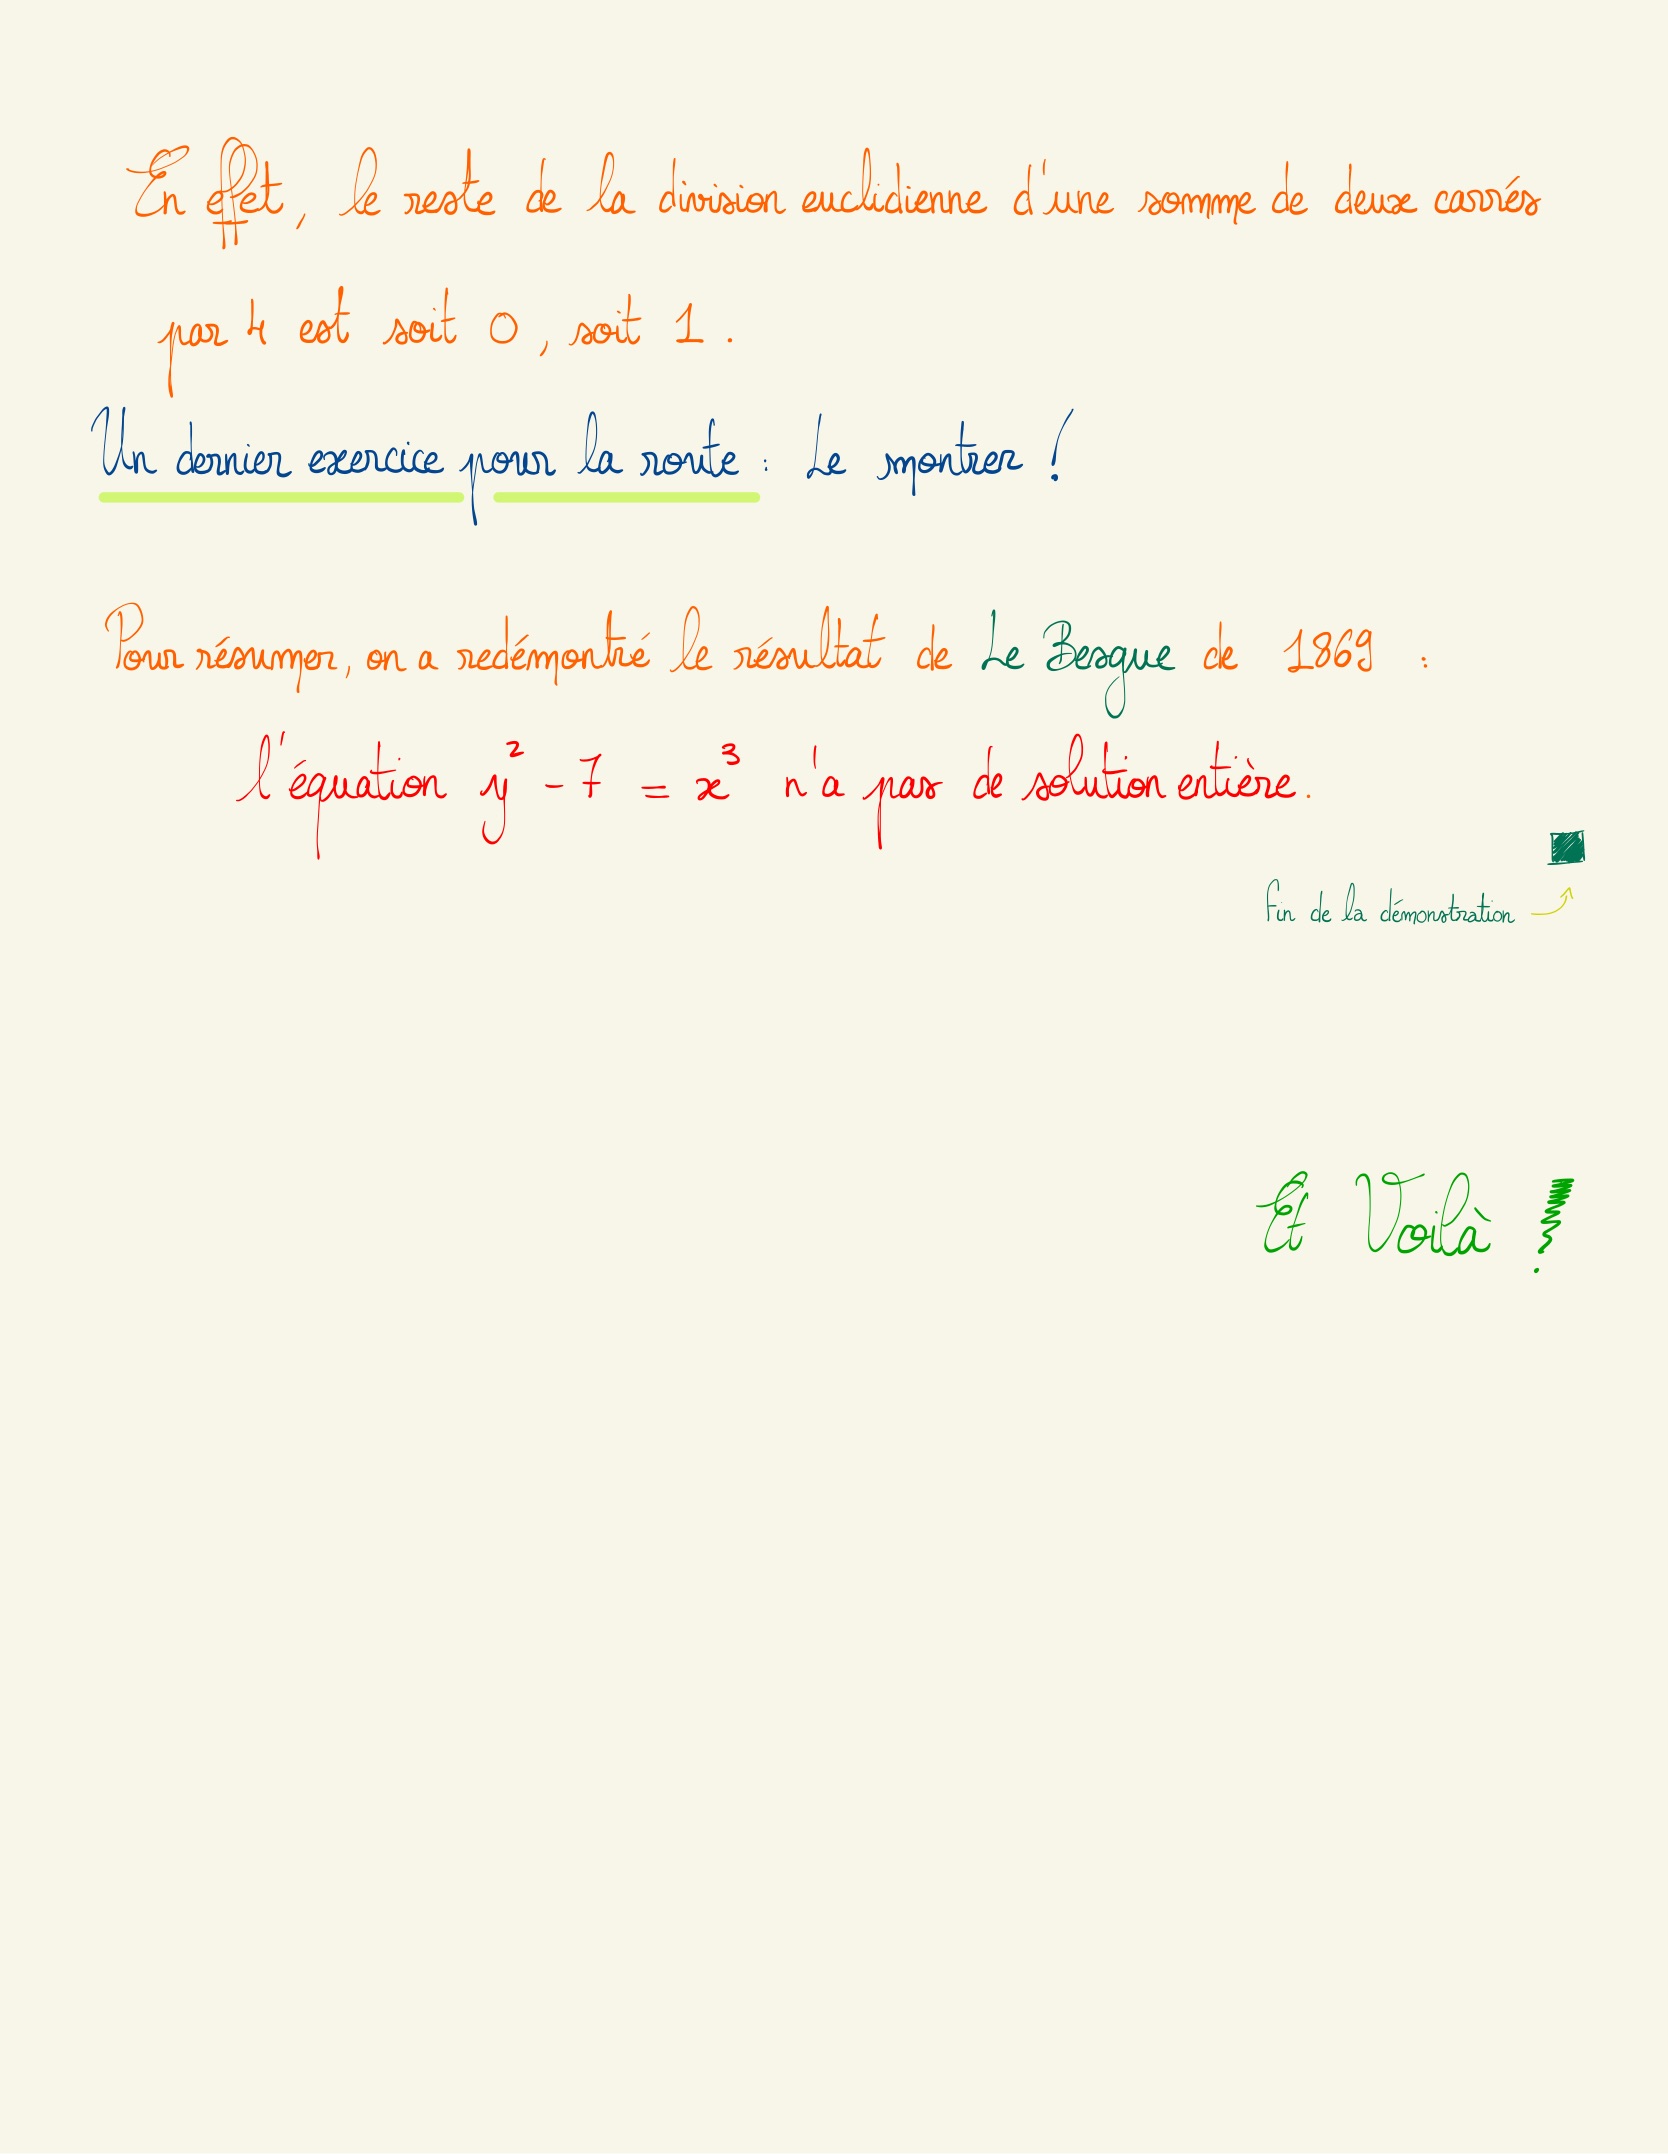 En effet, le reste de la division euclidienne d'une somme de deux carrés
par 4 est soit 0, soit 1.
Un dernier exercice pour la route : Le montrer !
Pour résumer, on a redémontré le résultat de Le Besgue de 1869 :
l'équation y² - 7 = x³ n'a pas de solution entière.
Fin de la démonstration
Et Voilà !